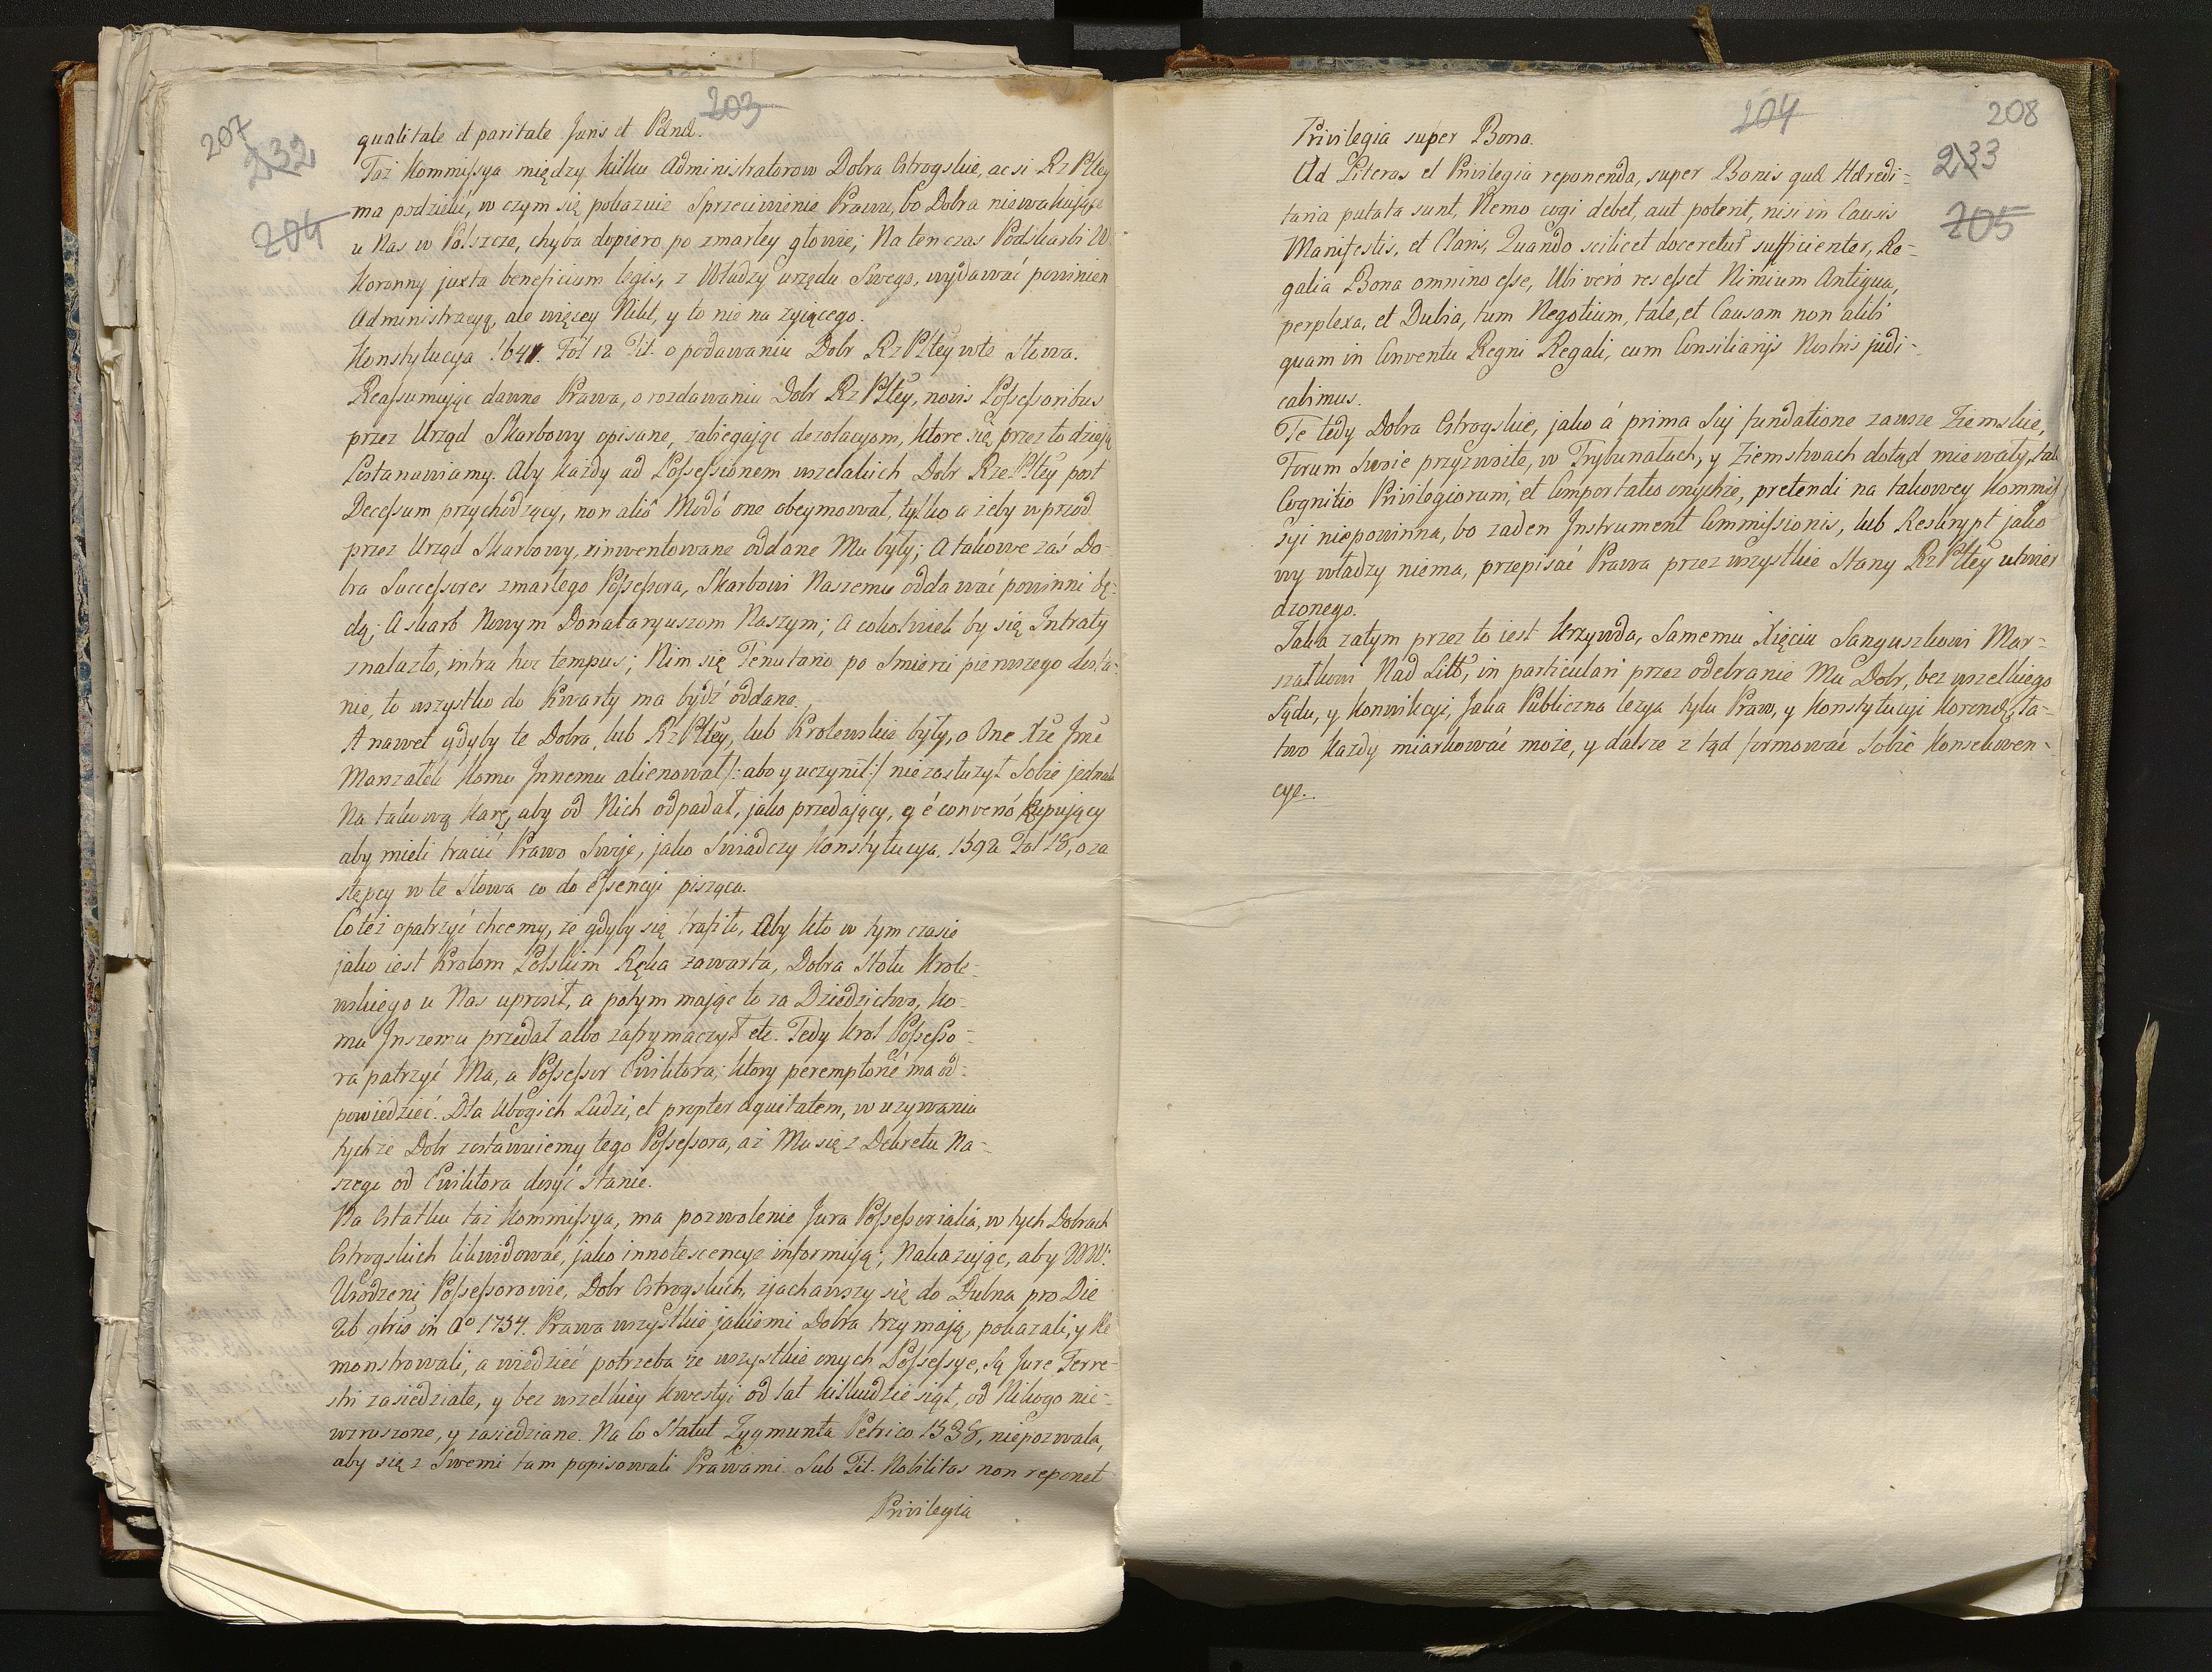 203
207
232
204
qualitate et paritate Juris et Pænæ.
Taż Kommissya między kilku Administratorow Dobra Ostrogskie, ac si RzPltey
ma podzielić, w czym się pokazuie Sprzeciwienie Prawu, bo Dobra niewakuiące
u Nas w Polszcze, chyba dopiero po zmarłey głowie; Na ten czas Podskarbi W.
Koronny juxta beneficium legis, z Władzy urzędu Swego, wydawać powinien
Administracyą, ale więcey Nikt, y to nie na żyiącego.
Konstytucya 1641. Fol 12 Tit. o podawaniu Dobr RzPltey w te Słowa.
Reassumuiąc dawne Prawa, o rozdawaniu Dobr RzPltey, novis Possessoribus
przez Urząd Skarbowy opisane, zabiegając dezolacyom, ktore się przez to dzieją
Postanawiamy. Aby każdy ad Possessionem wszelakich Dobr RzePltey post
Decessum przychodzący, non aliô Modô one obeymował, tylko a żeby wprzod
przez Urząd Skarbowy, zinwentowane oddane Mu były; A takowe zaś Do-
bra Successores zmarłego Possessora, Skarbowi Naszemu oddawać powinni bę-
dą; A skarb Nowym Donataryuszom Naszym; A cokolwiek by się Intraty
znalazło, intra hoc tempus; Nim się Tenutario po Smierci pierwszego dosta-
nie, to wszystko do Kwarty ma bydź oddane.
A nawet gdyby te Dobra, lub RzPltey, lub Krolewskie były, a One Xże Jmć
Marszałek komu Innemu alienował /: abo y uczynił:/ nie zasłużył Sobie jednak
Na takową karę, aby od Nich odpadał, jako przedający, y é converió kupujący
aby mieli tracić Prawo Swoje, jako Swiadczy Konstytucya 1592 Fol 18, o za
stępcy w te Słowa co do Essencyi pisząca.
Co też opatrzyć chcemy, że gdyby się trafiło, Aby kto w tym czasie
jako iest Krolom Polskim Ręka zawarta, Dobra Stołu Krole-
wskiego u Nas uprosił, a potym mając to za Dziedzictwo, ko-
mu Inszemu przedał albo zafrymaczył etc. Tedy Krol Possesso-
ra patrzyć Ma, a Possessor Ewiktora; ktory peremptorié ma od-
powiedzieć. Dla Ubogich Ludzi, et propter æquitatem, w używaniu
tychże Dobr zostawuiemy tego Possessora, aż Mu się z Dekretu Na-
szego od Ewiktora dosyć stanie.
Na Ostatku taż Kommissya, ma pozwolenie Jura Possessorialia, w tych Dobrach
Ostrogskich likwidować, jako innotescencye informują; Nakazując, aby WW.
Urodzeni Possessorowie, Dobr Ostrogskich, zjachawszy się do Dubna pro Die
2db gbris in A° 1754. Prawa wszystkie jakiemi Dobra trzymają, pokazali, y Re
monstrowali, a wiedzieć potrzeba że wszystkie onych Possessye, Są Jure Terre-
stri zasiedziałe, y bez wszelkiey kwestyi od lat kilkudziesiąt, od Nikogo nie-
wzruszone, y zasiedziane. Na Co Statut Zygmunta Petrico. 1538, niepozwala,
aby się z Swemi tam popisowali Prawami. Sub Tit. Nobilitas non reponet
Privilegia
204
208
233
205
Privilegia super Bona.
Ad Literas et Privilegia reponenda, super Bonis quæ Hæredi-
taria putata sunt, Nemo cogi debet, aut poterit, nisi in Causis
Manifestis, et Claris, Quando scilicet doceretur sufficienter, Re-
galia Bona omnino esse, Ubi veró res esset Nimium Antiqua,
perplexa, et Dubia, tum Negotium, tale, et Causam non alibi
quam in Conventu Regni Regali, cum Consiliarijs Nostris judi-
cabimus.
Te tedy Dobra Ostrogskie, jako á prima Sui fundatione zawsze Ziemskie,
Forum Swoie przyzwoite, w Trybunałach, y Ziemstwach dotąd miewały, tak
Cognitio Privilegiorum, et Comportatio onychże, pretendi na takowey Kommis
syi niepowinna, bo żaden Instrument Commissionis, lub Reskrypt jako
wy władzy niema, przepisać Prawa przez wszystkie Stany RzPltey utwier
dzonego.
Jaka zatym przez to iest Krzywda, Samemu Xięciu Sanguszkowi Mar-
szałkowi Nad Litt, in particulari przez odebranie Mu Dobr, bez wszelkiego
Sądu, y Konwikcyi, Jaka Publiczna lezya tylu Praw, y Konstytucyi Koronnę, ła-
two każdy miarkować może, y dalsze z tąd formować Sobie Konsekwen-
cye.